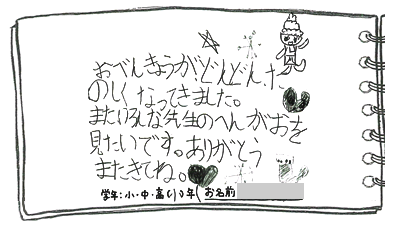 おべんきょうがどんどんた
のしくなってきました。
またいろんな先生のへんがおを
見たいです。ありがとう
またきてね。
学年:小・中・高(1)0年(お名前